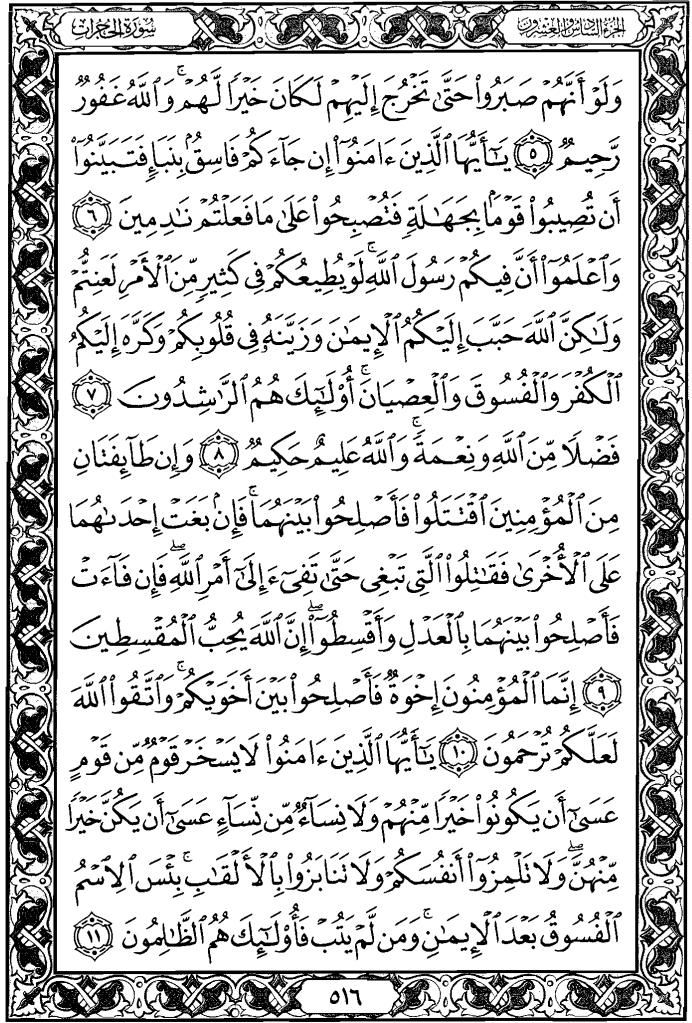 سُورَةُ الحُجُرَاتِ الجُزْءُ السَّادِسُ وَالعِشْرُونَ
وَلَوْ أَنَّهُمْ صَبَرُوا۟ حَتَّىٰ تَخْرُجَ إِلَيْهِمْ لَكَانَ خَيْرًا لَّهُمْ ۚ وَٱللَّهُ غَفُورٌ
رَّحِيمٌ ٥ يَـٰٓأَيُّهَا ٱلَّذِينَ ءَامَنُوٓا۟ إِن جَآءَكُمْ فَاسِقٌۢ بِنَبَإٍ فَتَبَيَّنُوٓا۟
أَن تُصِيبُوا۟ قَوْمًۢا بِجَهَـٰلَةٍ فَتُصْبِحُوا۟ عَلَىٰ مَا فَعَلْتُمْ نَـٰدِمِينَ ٦
وَٱعْلَمُوٓا۟ أَنَّ فِيكُمْ رَسُولَ ٱللَّهِ ۚ لَوْ يُطِيعُكُمْ فِى كَثِيرٍ مِّنَ ٱلْأَمْرِ لَعَنِتُّمْ
وَلَـٰكِنَّ ٱللَّهَ حَبَّبَ إِلَيْكُمُ ٱلْإِيمَـٰنَ وَزَيَّنَهُۥ فِى قُلُوبِكُمْ وَكَرَّهَ إِلَيْكُمُ
ٱلْكُفْرَ وَٱلْفُسُوقَ وَٱلْعِصْيَانَ ۚ أُو۟لَـٰٓئِكَ هُمُ ٱلرَّٰشِدُونَ ٧
فَضْلًا مِّنَ ٱللَّهِ وَنِعْمَةً ۚ وَٱللَّهُ عَلِيمٌ حَكِيمٌ ٨ وَإِن طَآئِفَتَانِ
مِنَ ٱلْمُؤْمِنِينَ ٱقْتَتَلُوا۟ فَأَصْلِحُوا۟ بَيْنَهُمَا ۖ فَإِنۢ بَغَتْ إِحْدَىٰهُمَا
عَلَى ٱلْأُخْرَىٰ فَقَـٰتِلُوا۟ ٱلَّتِى تَبْغِى حَتَّىٰ تَفِىٓءَ إِلَىٰٓ أَمْرِ ٱللَّهِ ۚ فَإِن فَآءَتْ
فَأَصْلِحُوا۟ بَيْنَهُمَا بِٱلْعَدْلِ وَأَقْسِطُوٓا۟ ۖ إِنَّ ٱللَّهَ يُحِبُّ ٱلْمُقْسِطِينَ
٩ إِنَّمَا ٱلْمُؤْمِنُونَ إِخْوَةٌ فَأَصْلِحُوا۟ بَيْنَ أَخَوَيْكُمْ ۚ وَٱتَّقُوا۟ ٱللَّهَ
لَعَلَّكُمْ تُرْحَمُونَ ١٠ يَـٰٓأَيُّهَا ٱلَّذِينَ ءَامَنُوا۟ لَا يَسْخَرْ قَوْمٌ مِّن قَوْمٍ
عَسَىٰٓ أَن يَكُونُوا۟ خَيْرًا مِّنْهُمْ وَلَا نِسَآءٌ مِّن نِّسَآءٍ عَسَىٰٓ أَن يَكُنَّ خَيْرًا
مِّنْهُنَّ ۖ وَلَا تَلْمِزُوٓا۟ أَنفُسَكُمْ وَلَا تَنَابَزُوا۟ بِٱلْأَلْقَـٰبِ ۖ بِئْسَ ٱلِٱسْمُ
ٱلْفُسُوقُ بَعْدَ ٱلْإِيمَـٰنِ ۚ وَمَن لَّمْ يَتُبْ فَأُو۟لَـٰٓئِكَ هُمُ ٱلظَّـٰلِمُونَ ١١
٥١٦